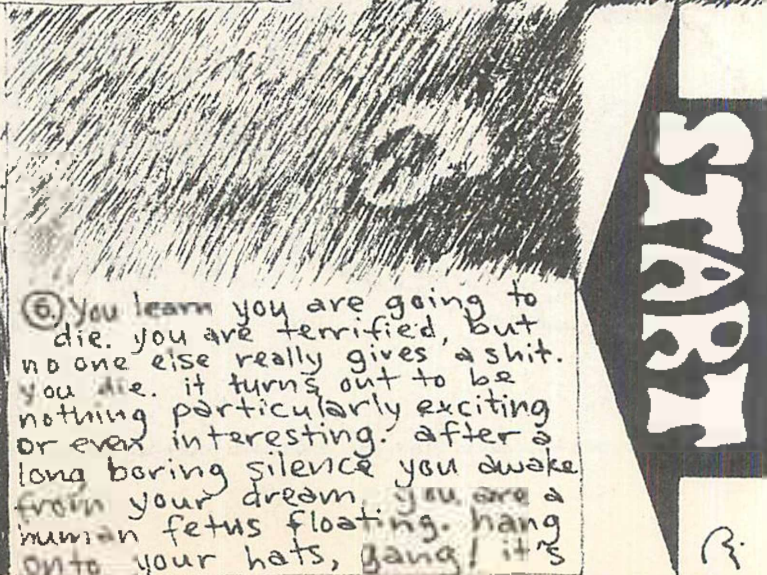 6. You learn you are going to
die. you are terrified, but
no one else really gives a shit.
you die. it turns out to be
nothing particularly exciting
or even interesting. after a
long boring silence you awake
from your dream. you are a
human fetus floating. hang
onto your hats, gang! it's
START